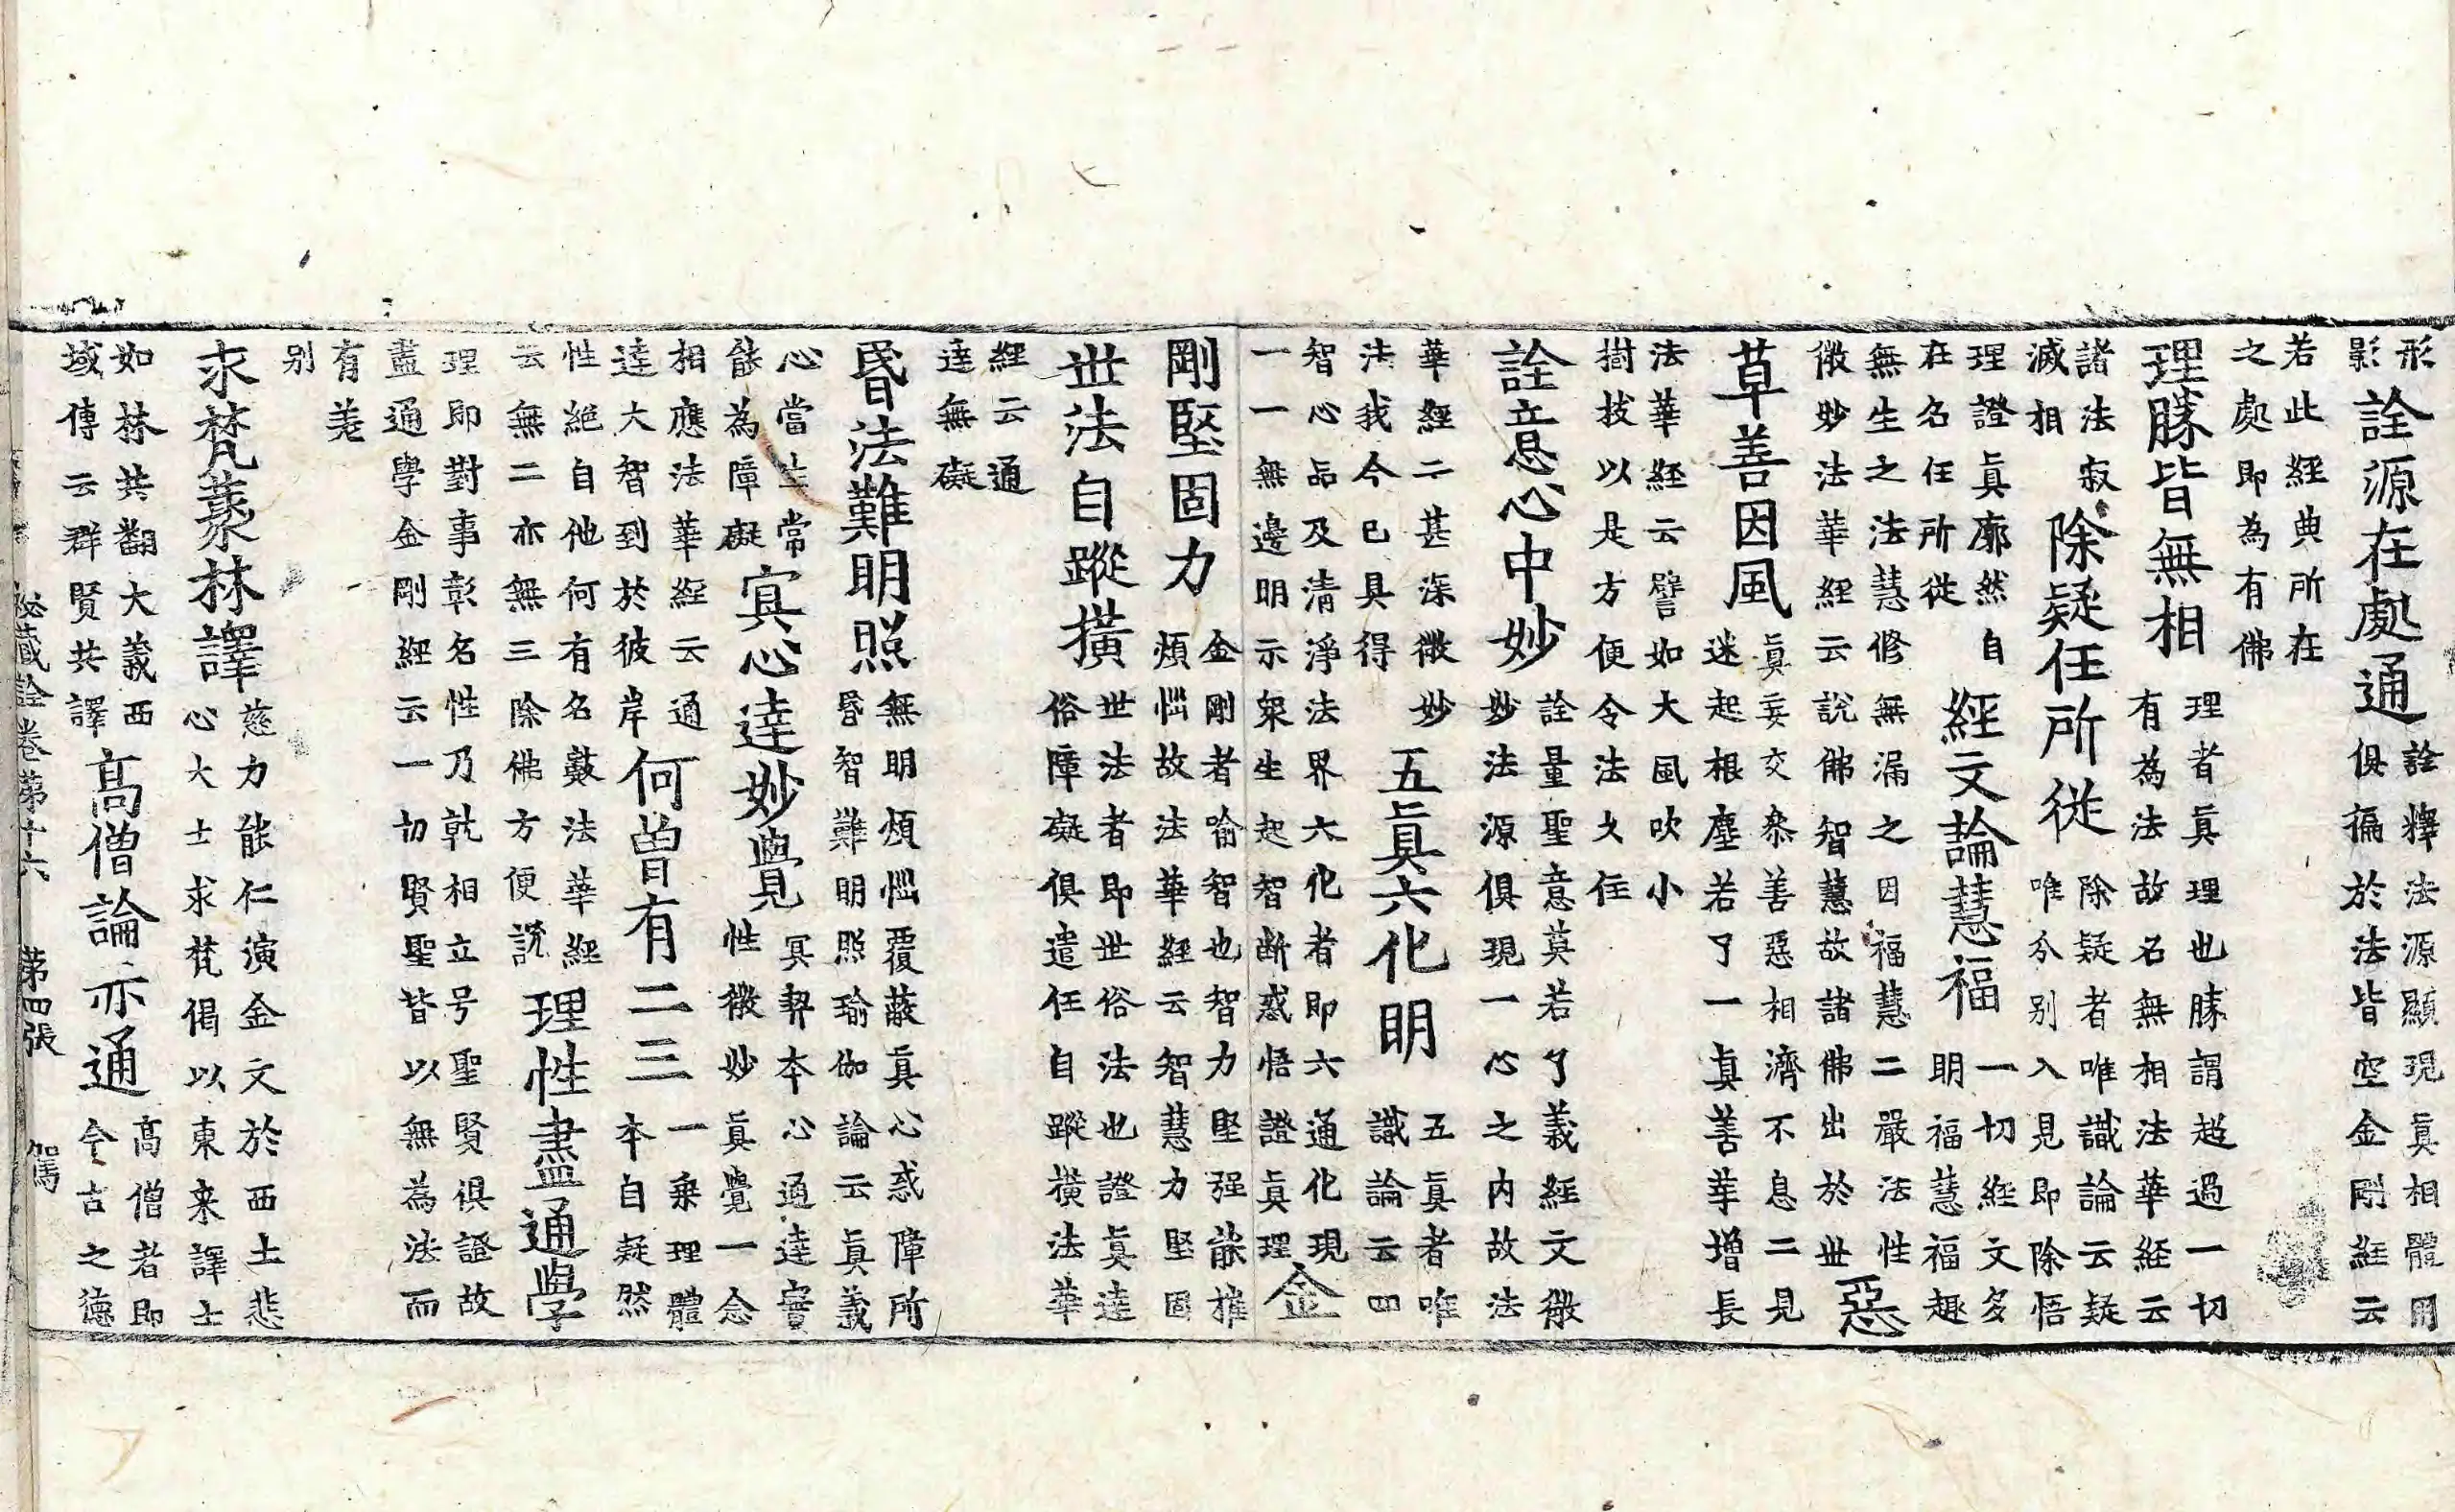 形
影
詮源在處通
詮釋法源顯現真相體用
俱徧於法皆空金剛經云
若此經典所在
之處即為有佛
理勝皆無相
理者真理也勝謂超過一切
有為法故名無相法華經云
諸法寂
滅相
除疑任所從
除疑者唯識論云疑
唯分別入見即除悟
理證真廓然自
在名任所從
經文論慧福
一切經文多
明福慧福趣
無生之法慧修無漏之因福慧二嚴法性
微妙法華經云說佛智慧故諸佛出於世
惡
草善因風
真妄交叅善惡相濟不息二見
迷起根塵若了一真善茟增長
法華經云譬如大風吹小
樹拔以是方便令法久住
詮意心中妙
詮量聖意莫若了義經文微
妙法源俱現一心之內故法
華經二甚深微妙
法我今已具得
五真六化明
五真者唯
識論云四
智心品及清淨法界六化者即六通化現
一一無邊明示衆生起智断惑悟證真理
金
剛堅固力
金剛者喻智也智力堅强能摧
煩惱故法華經云智慧力堅固
世法自蹤横
世法者即世俗法也證真達
俗障礙俱遣任自蹤横法華
經云通
達無礙
昬法難明照
無明煩惱覆蔽真心惑障所
昬智難明照瑜伽論云真義
心當生常
能為障礙
冥心達妙覺
冥契本心通達實
性微妙真覺一念
相應法華經云通
達大智到於彼岸
何曾有二三
一乗理體
本自凝然
性絶自他何有名數法華經
云無二亦無三除佛方便説
理性盡通學
理即對事彰名性乃軌相立号聖賢俱證故
盡通學金剛經云一切賢聖皆以無為法而
有差
別
求梵蒃林譯
慈力能仁演金文於西土悲
心大士求梵偈以東来譯士
如林共翻大義西
域傳云群賢共譯
高僧論亦通
高僧者即
今古之德
秘藏詮卷第十六 第四張 駕